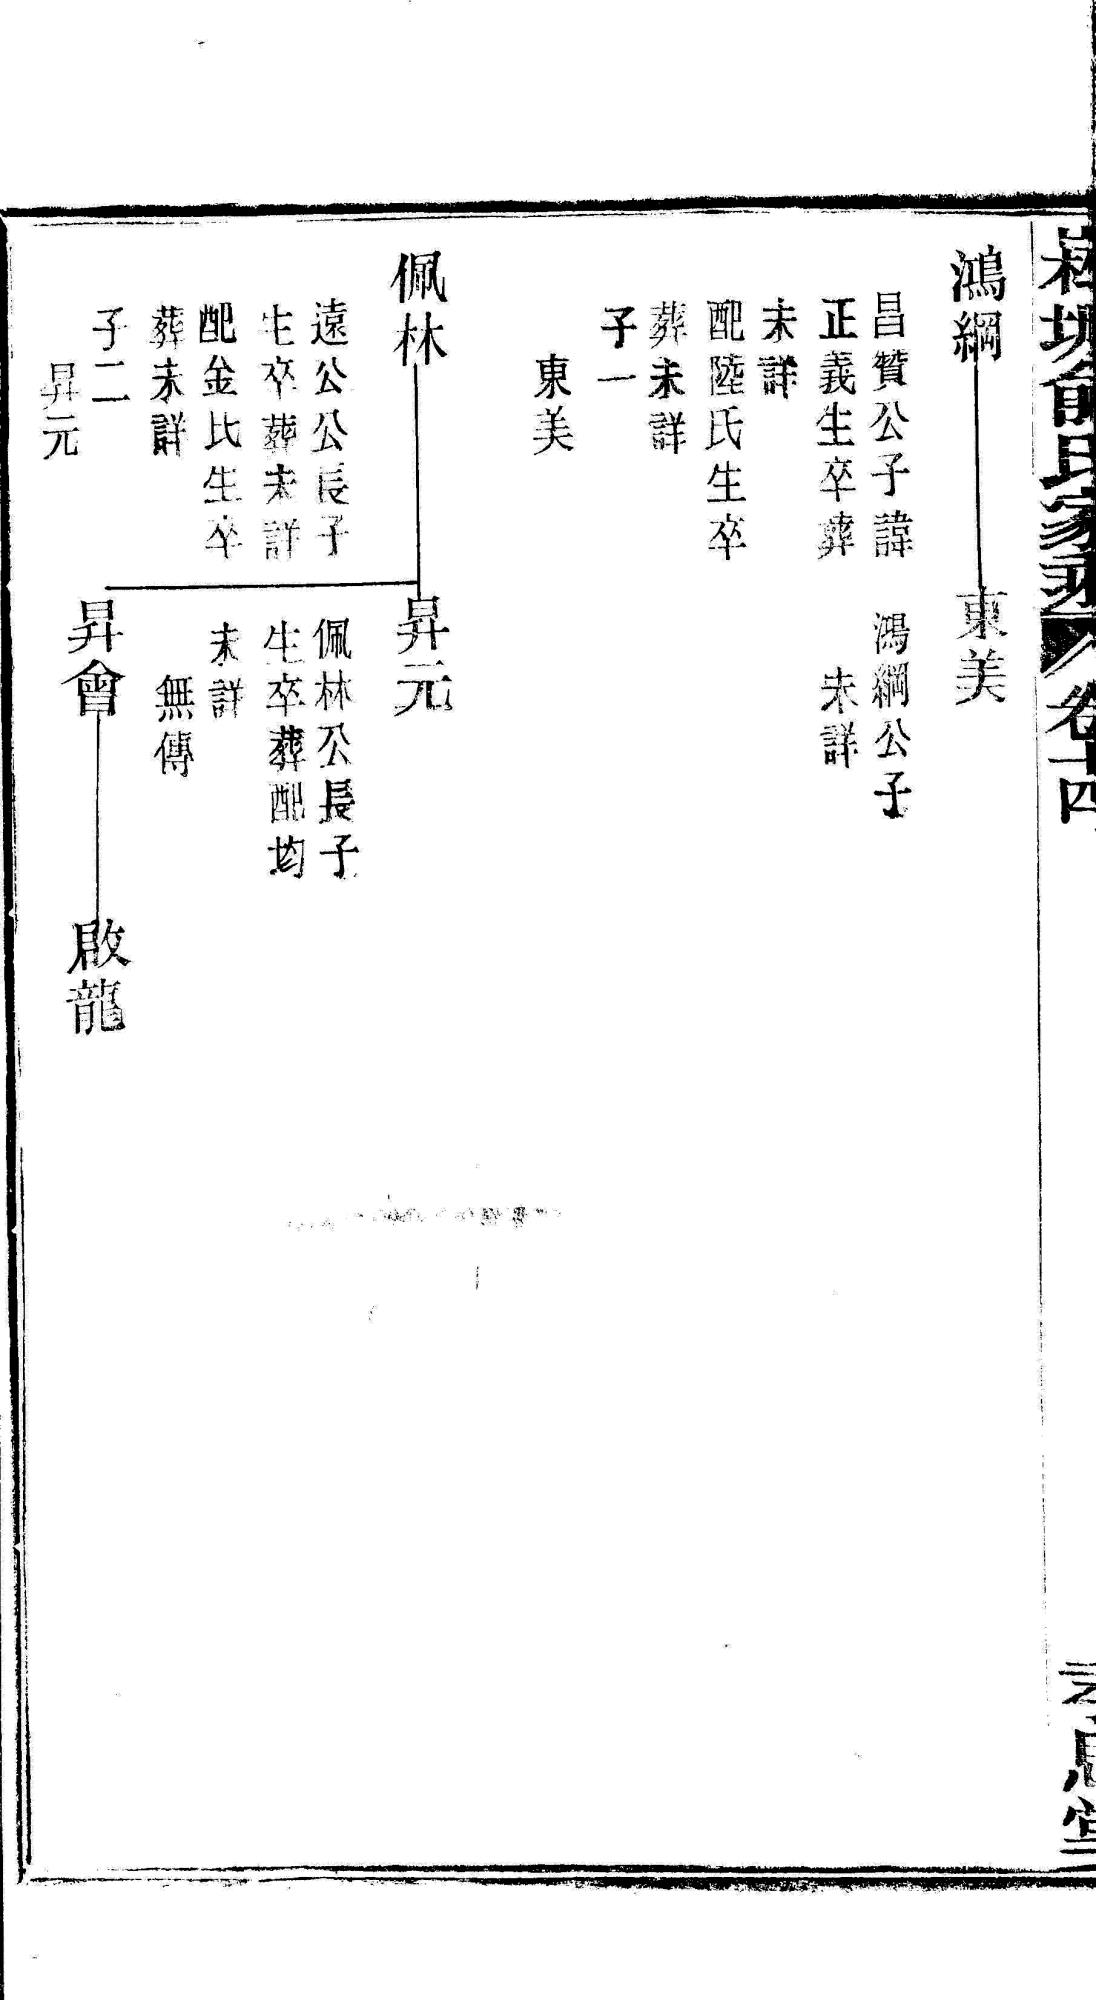 俞氏家乘
卷十四
思堂
鴻綱
昌贊公子諱
正義生卒葬
未詳
配陸氏生卒
葬未詳
子一
東美
東美
鴻綱公子
未詳
佩林
遠公公長子
生卒葬未詳
配金氏生卒
葬未詳
子二
昇元
昇元
佩林公長子
生卒葬配均
未詳
無傳
昇會
啟龍